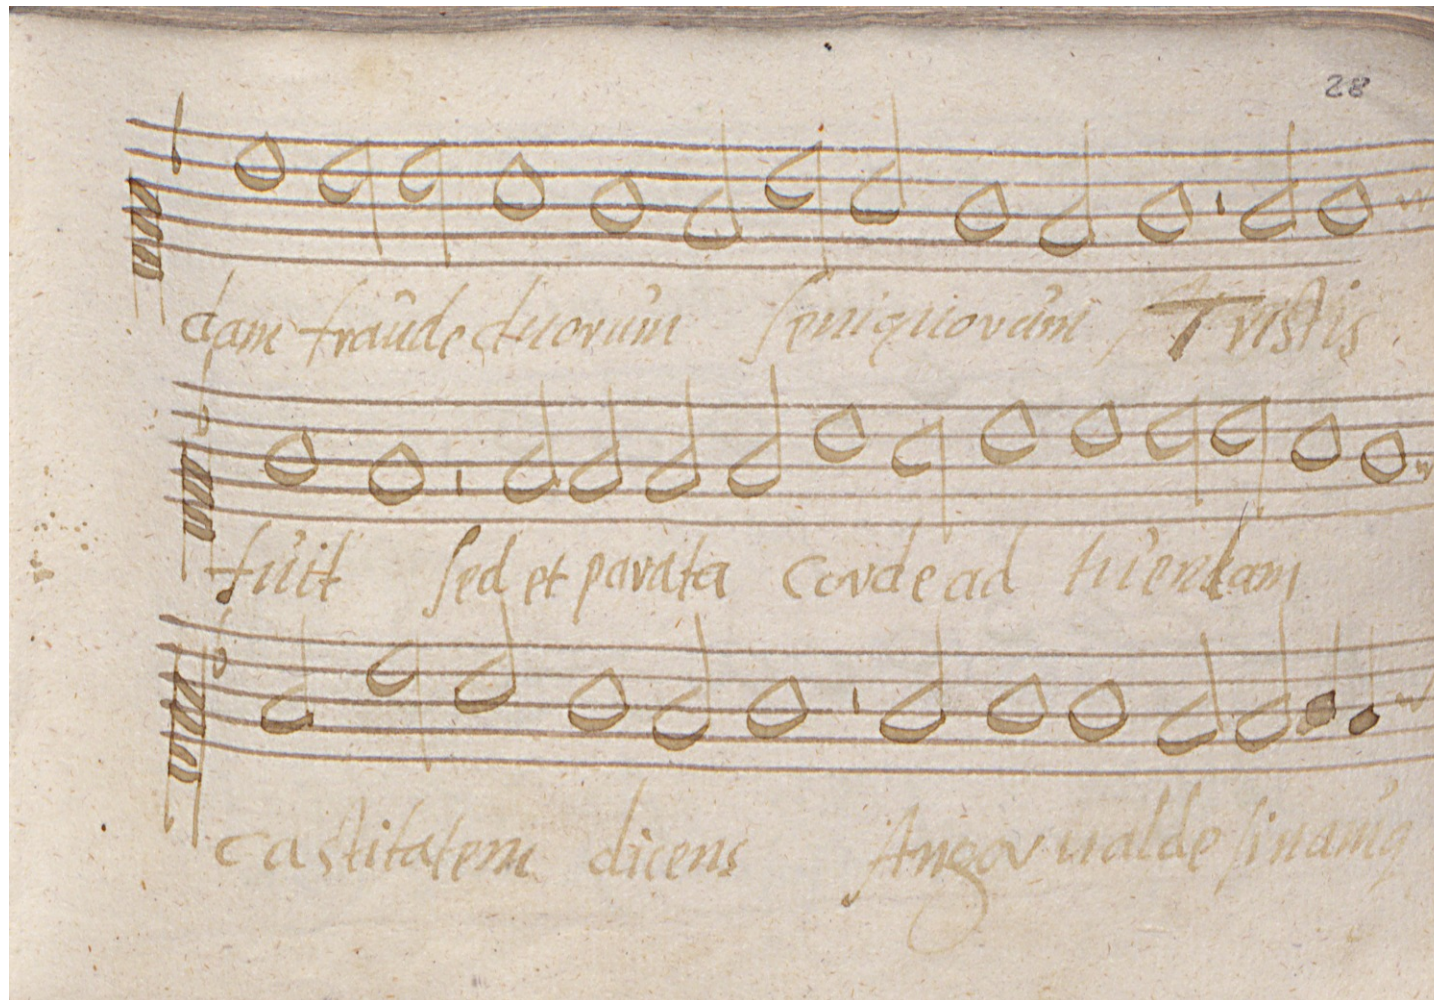 28
dam fraude duorum seniquorum Tristis
fuit sed et parata corde ad tuendam
castitatem dicens Angor ualde si namq